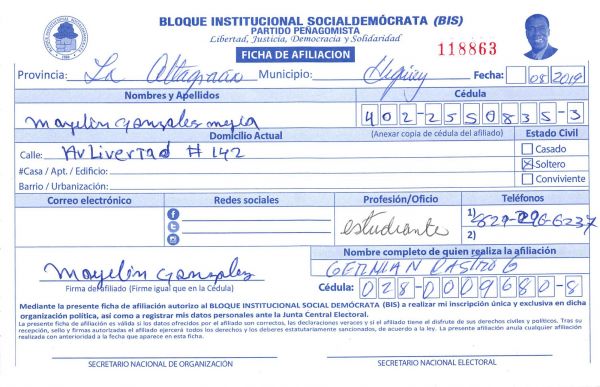 BLOQUE INSTITUCIONAL SOCIALDEMÓCRATA (BIS)
PARTIDO PEÑAGOMISTA
Libertad, Justicia, Democracia y Solidaridad
FICHA DE AFILIACION
118863
Provincia: La Altagracia Municipio: Higüey Fecha: 08 2019
Nombres y Apellidos Cédula
Mayelin Gonzales mejia 402-2550835-3
Domicilio Actual (Anexar copia de cédula del afiliado) Estado Civil
Calle: Av Livertad # 142 Casado
#Casa / Apt. / Edificio: Soltero
Barrio / Urbanización: Conviviente
Correo electrónico Redes sociales Profesión/Oficio Teléfonos
estudiante 1) 829-296-6237
2)
Nombre completo de quien realiza la afiliación
Mayelin Gonzales GERMAN CASTRO G
Firma del afiliado (Firme igual que en la Cédula) Cédula: 028-0009680-8
Mediante la presente ficha de afiliación autorizo al BLOQUE INSTITUCIONAL SOCIAL DEMÓCRATA (BIS) a realizar mi inscripción única y exclusiva en dicha
organización política, así como a registrar mis datos personales ante la Junta Central Electoral.
La presente ficha de afiliación es válida si los datos ofrecidos por el afiliado son correctos, las declaraciones veraces y si el afiliado tiene el disfrute de sus derechos civiles y políticos. Tras su
recepción, sello y firmas autorizadas el afiliado ejercerá todos los derechos y los deberes estatutariamente sancionados, de acuerdo a la ley. La presente afiliación anula cualquier afiliación
realizada con anterioridad a la fecha que aparece en esta ficha.
SECRETARIO NACIONAL DE ORGANIZACIÓN SECRETARIO NACIONAL ELECTORAL